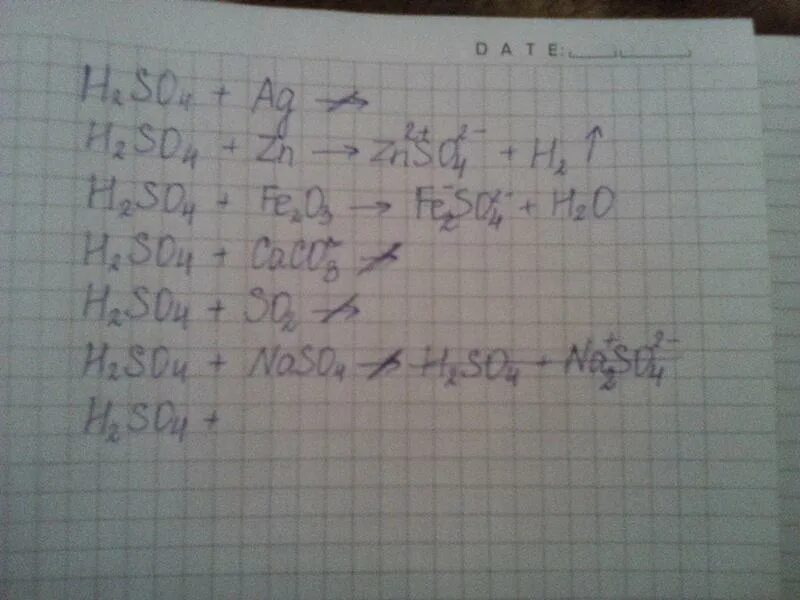 DATE:
H₂SO₄ + Ag ↛
H₂SO₄ + Zn → Zn²⁺SO₄²⁻ + H₂↑
H₂SO₄ + Fe₂O₃ → Fe₂⁻SO₄²⁻ + H₂O
H₂SO₄ + CaCO₃ ↛
H₂SO₄ + SO₂ ↛
H₂SO₄ + NaSO₄ ↛ H₂SO₄ + Na₂⁺SO₄²⁻
H₂SO₄ +